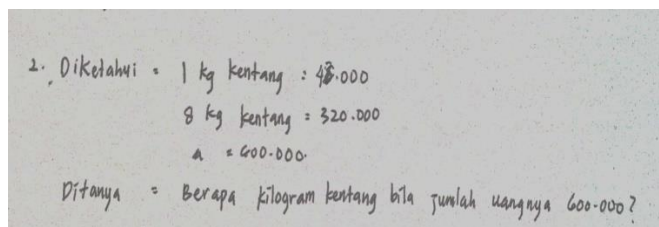 2. Diketahui = 1 kg kentang : 40.000
8 kg kentang = 320.000
a = 600.000.
Ditanya = Berapa kilogram kentang bila jumlah uangnya 600.000?